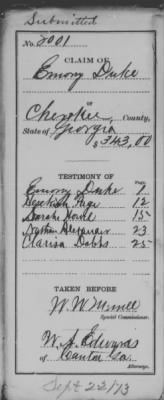 Submitted
No. 2001
CLAIM OF
Emory Duke
Cherokee County,
State of Georgia
$343,00
TESTIMONY OF Page
Emory Duke 1
Hezekiah Page 12
Sarah 15
Nathan 23
Clarisa Dobbs 25
TAKEN BEFORE
W. W. Merrell
Special Commissioner.
W. A. Edwards
of Canton Ga.
Attorney.
Sept 22/73